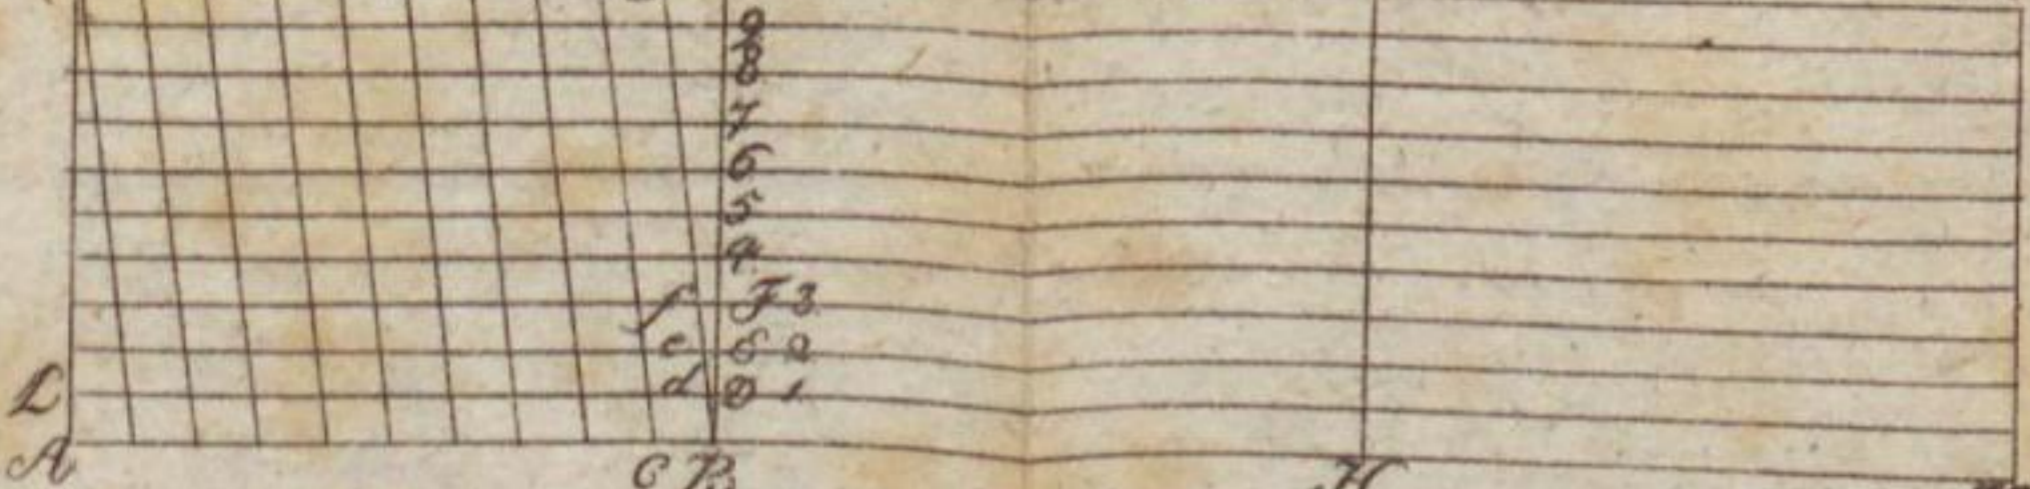 9
8
7
6
5
4
f F 3
e E 2
L d D 1
A C B H